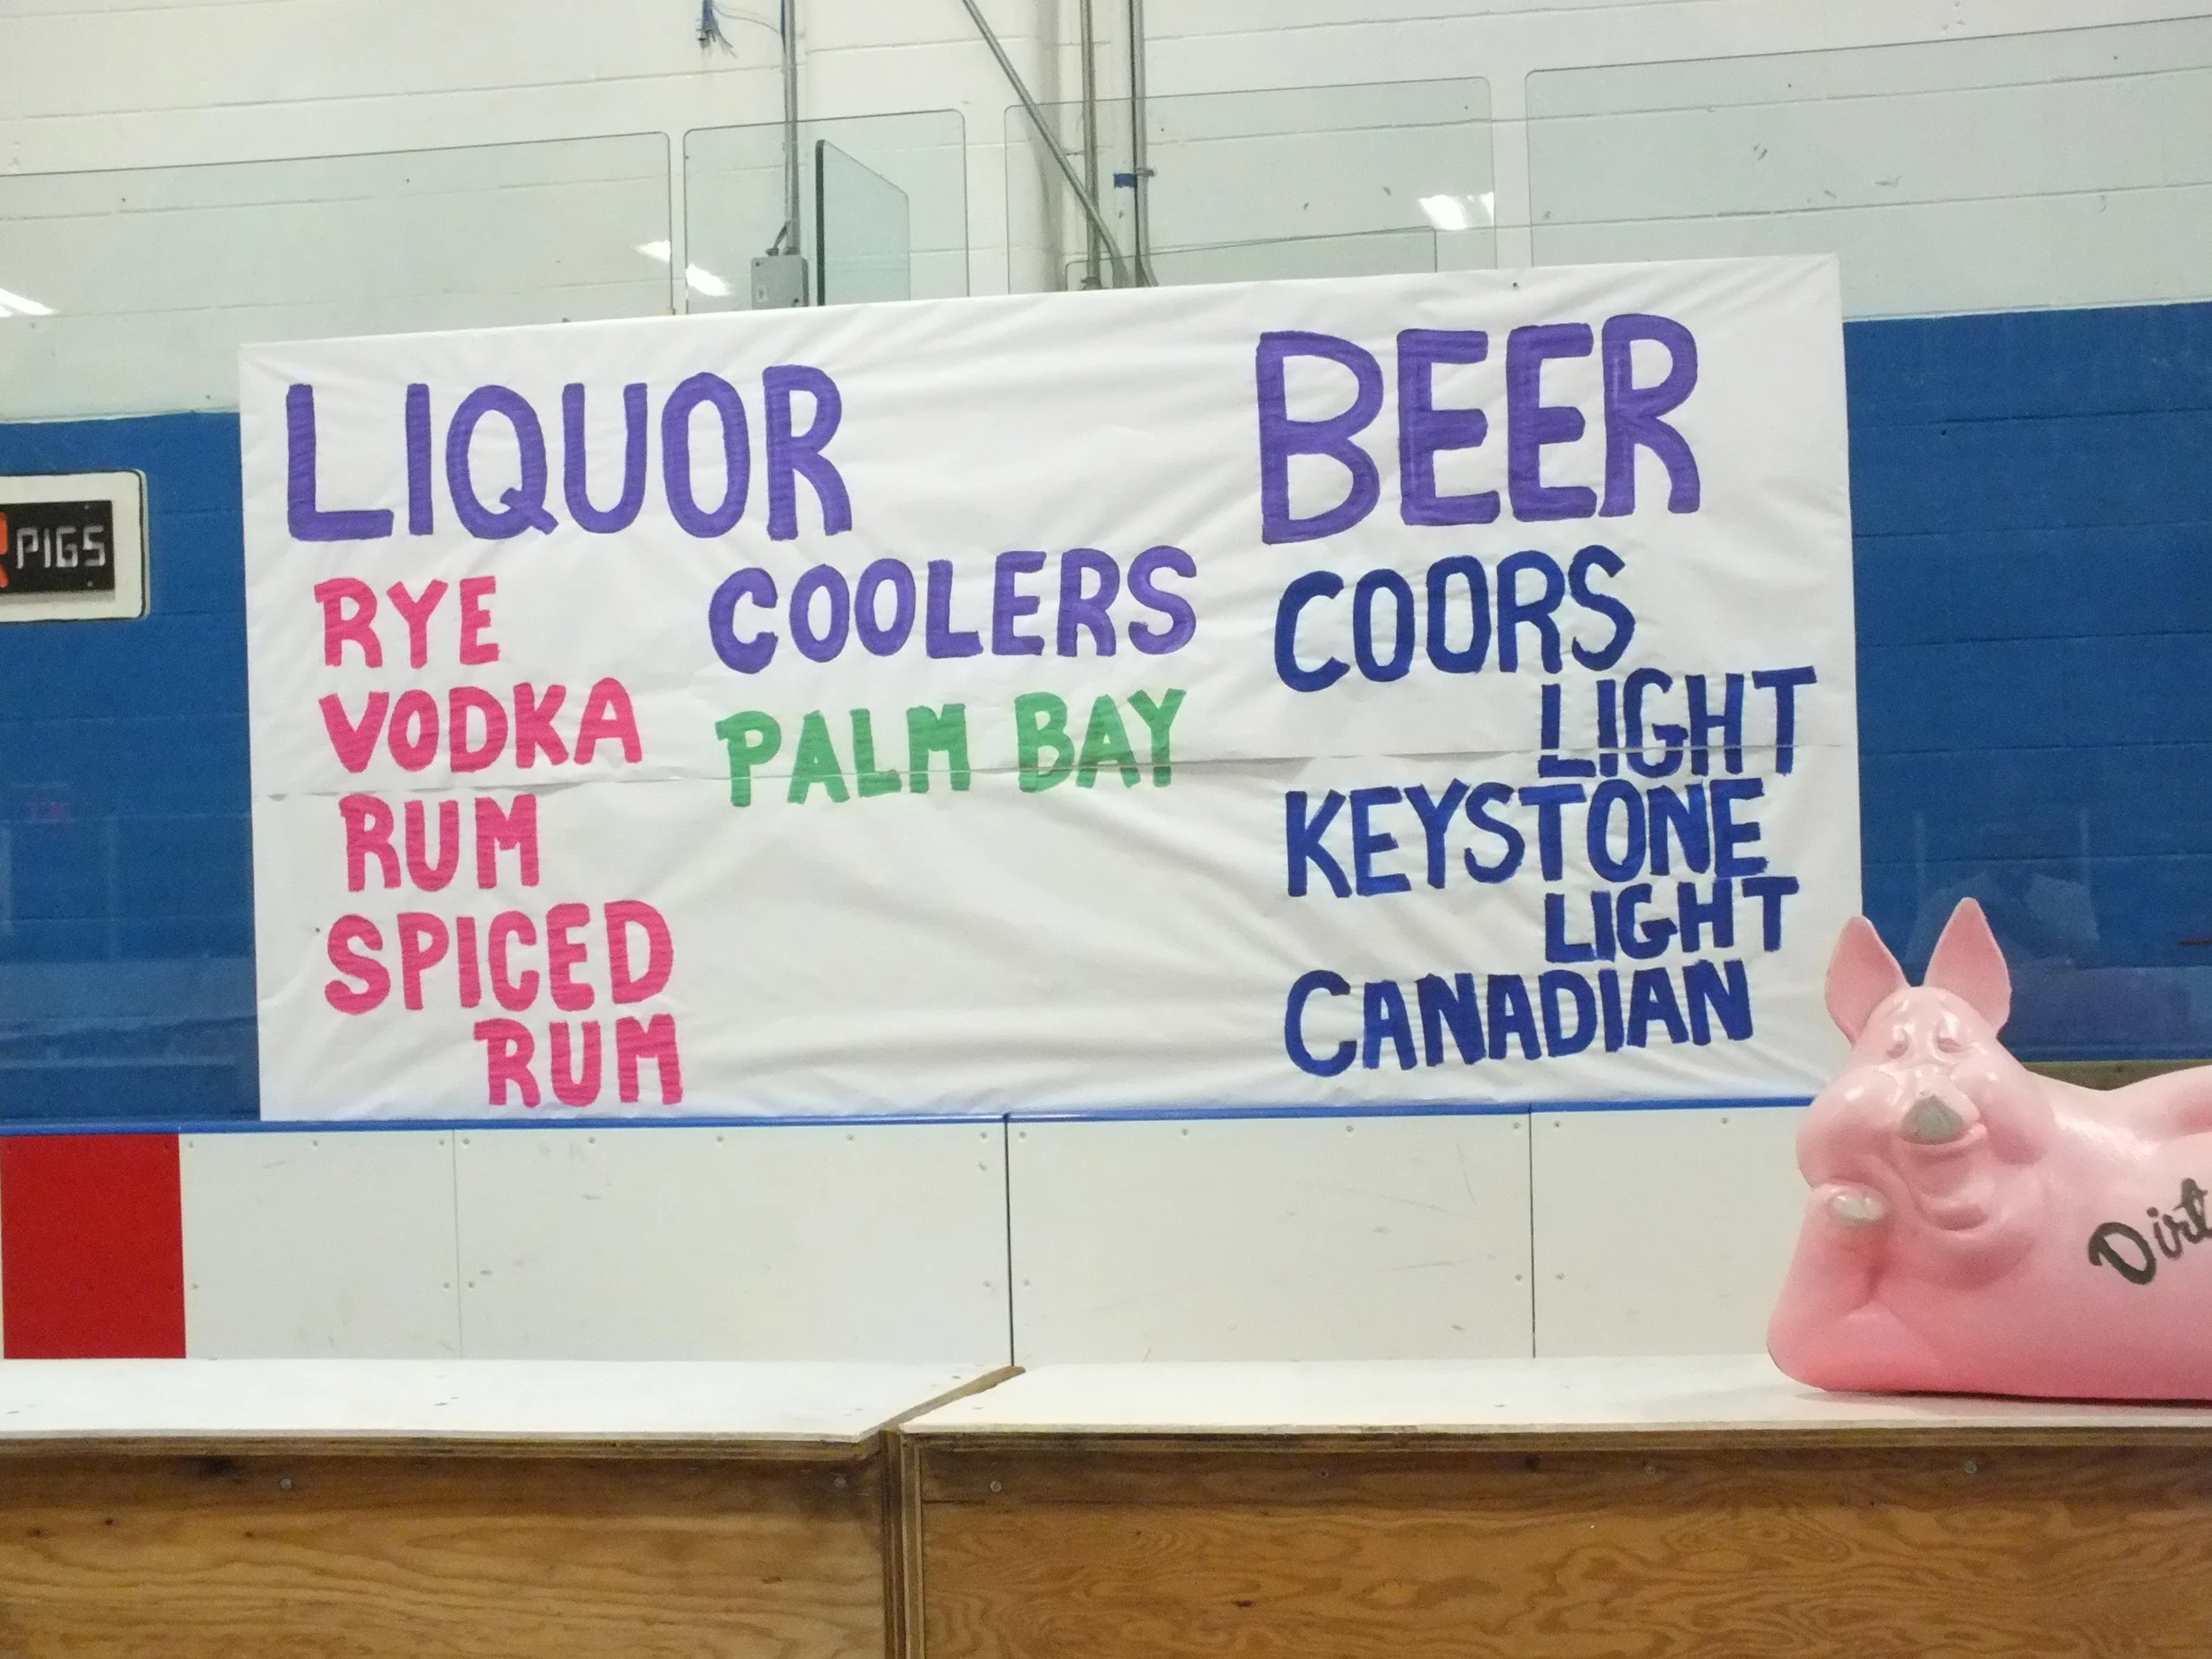 LIQUOR
RYE
VODKA
RUM
SPICED
RUM
COOLERS
PALM BAY
BEER
COORS
LIGHT
KEYSTONE
LIGHT
CANADIAN
PIGS